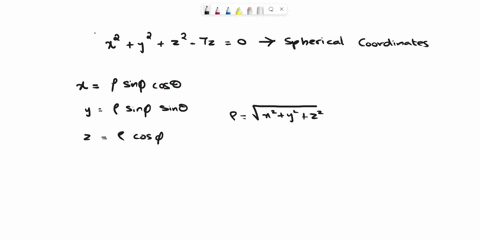 x² + y² + z² - 7z = 0 → Spherical Coordinates
x = ρ sinφ cosθ
y = ρ sinφ sinθ
ρ = √x² + y² + z²
z = ρ cosφ